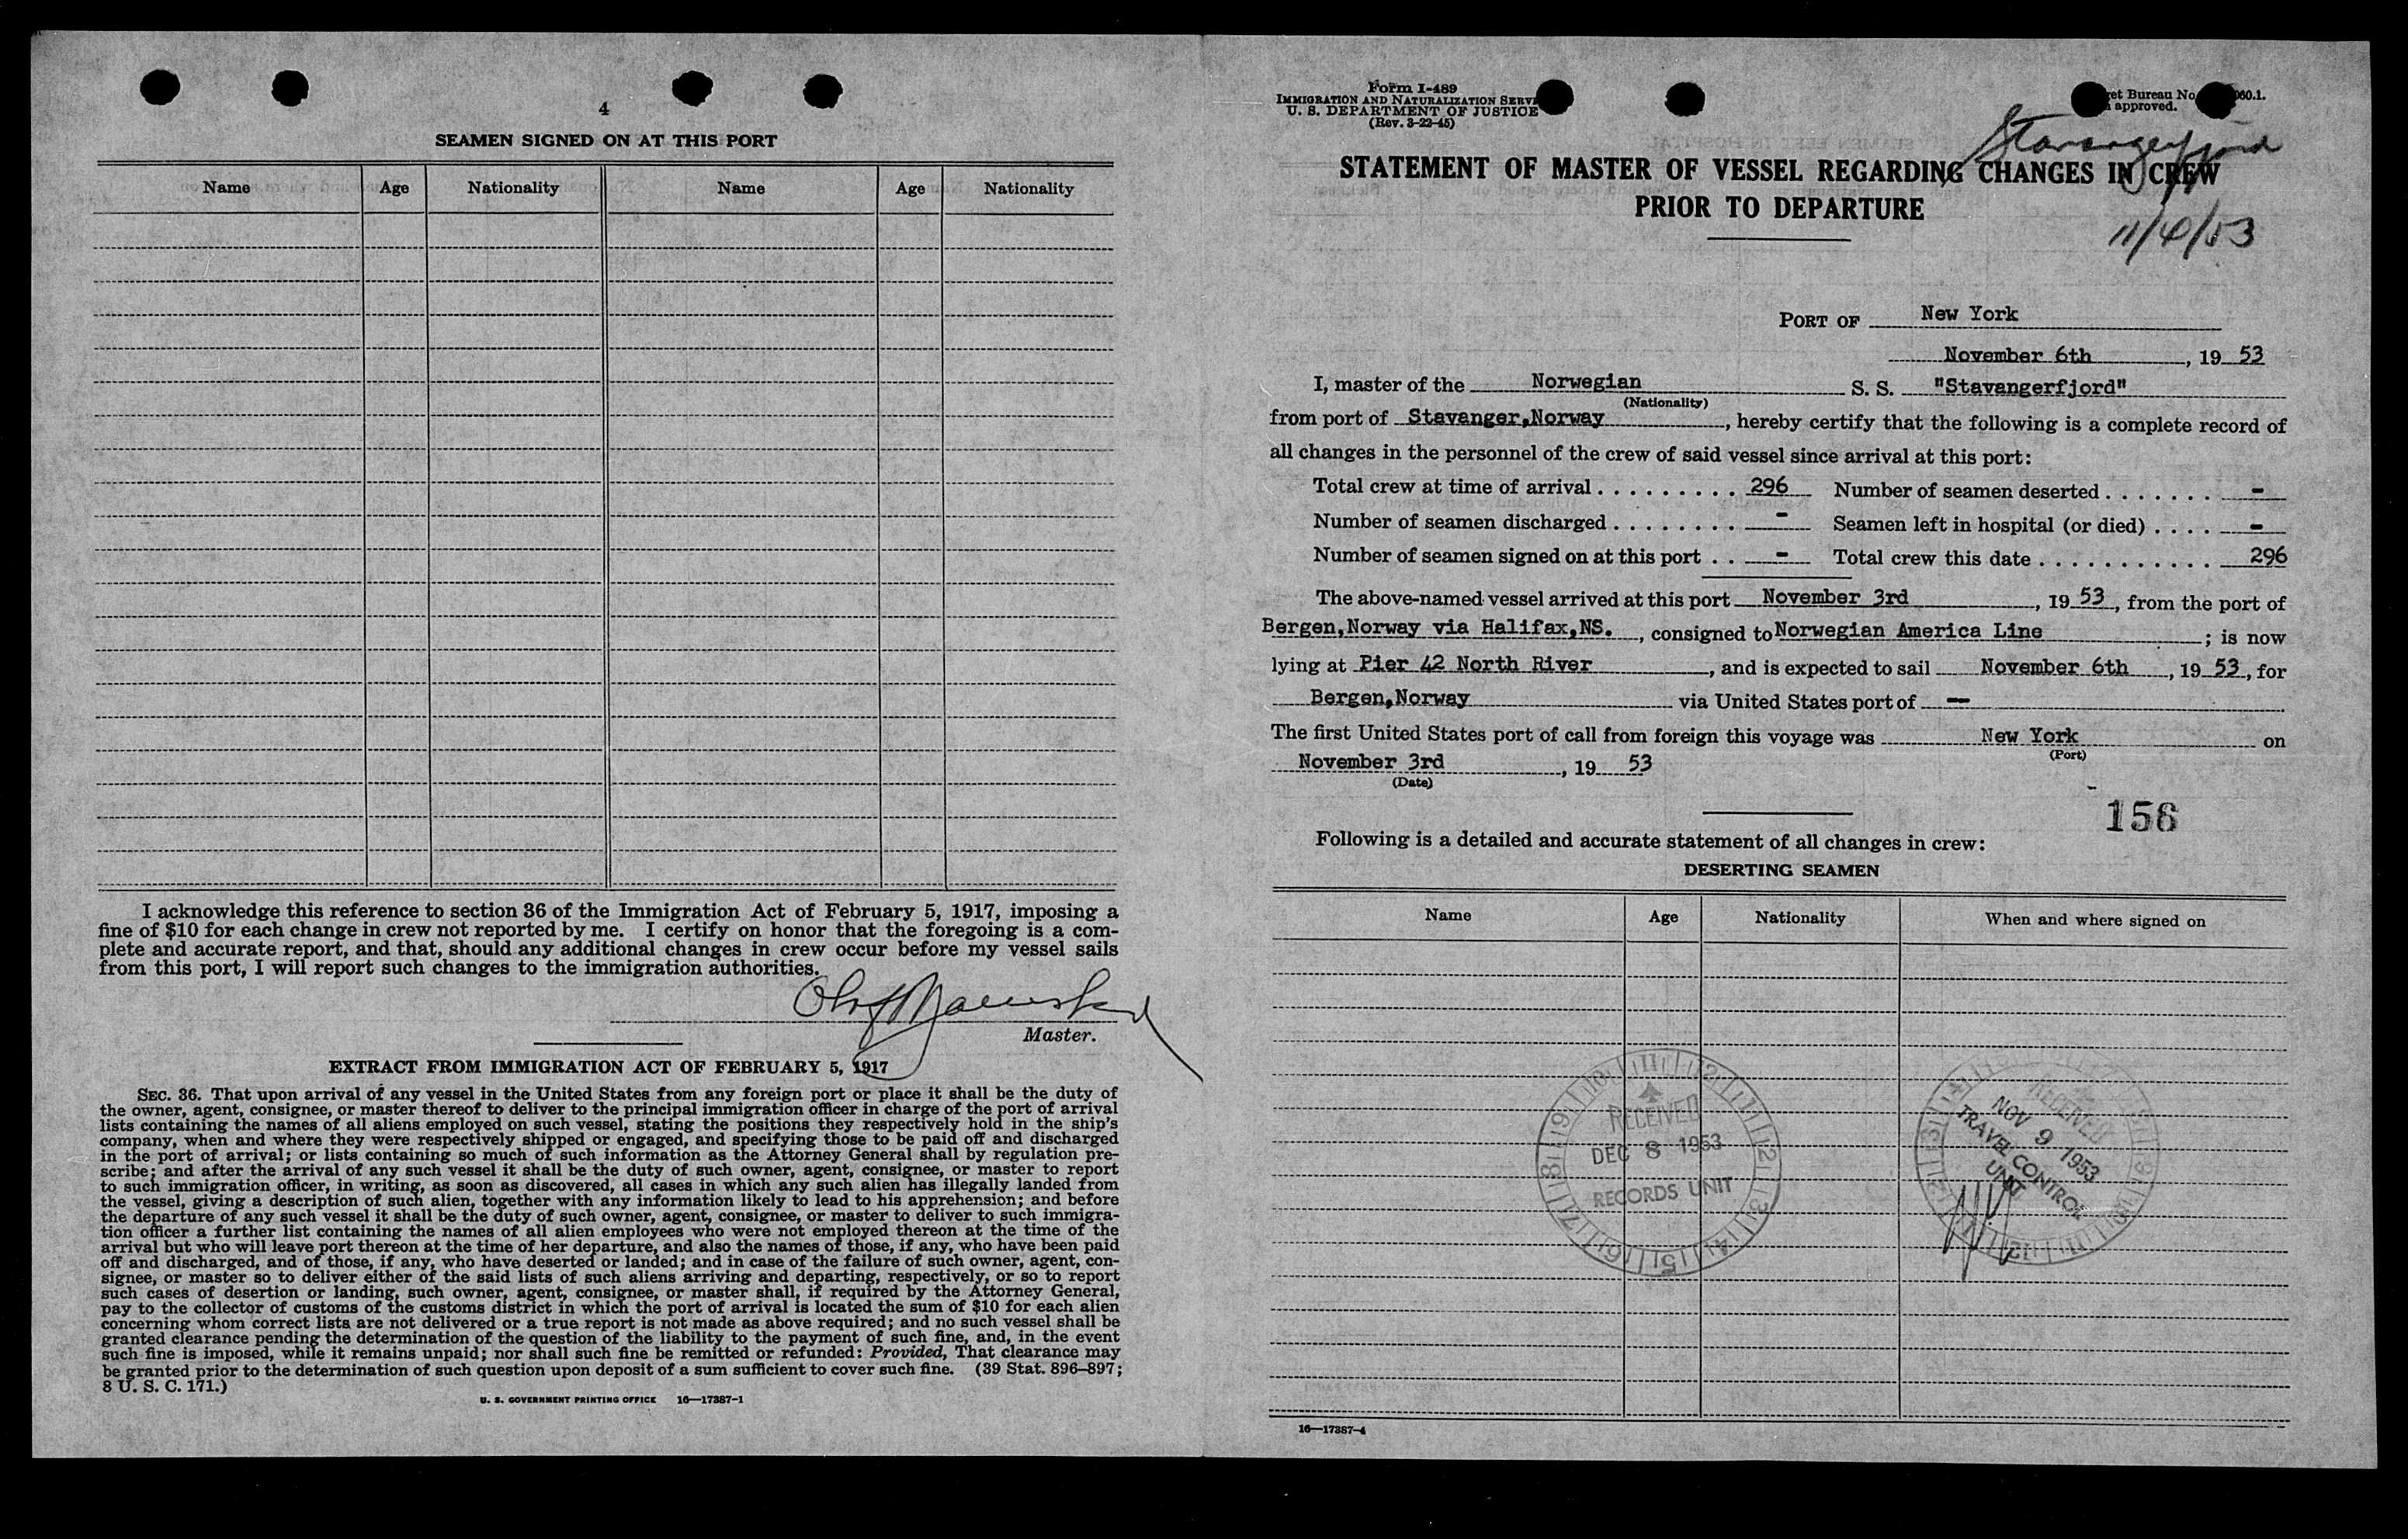 4
SEAMEN SIGNED ON AT THIS PORT
Name Age Nationality Name Age Nationality
I acknowledge this reference to section 36 of the Immigration Act of February 5, 1917, imposing a
fine of $10 for each change in crew not reported by me. I certify on honor that the foregoing is a com-
plete and accurate report, and that, should any additional changes in crew occur before my vessel sails
from this port, I will report such changes to the immigration authorities.
Master.
EXTRACT FROM IMMIGRATION ACT OF FEBRUARY 5, 1917
SEC. 36. That upon arrival of any vessel in the United States from any foreign port or place it shall be the duty of
the owner, agent, consignee, or master thereof to deliver to the principal immigration officer in charge of the port of arrival
lists containing the names of all aliens employed on such vessel, stating the positions they respectively hold in the ship's
company, when and where they were respectively shipped or engaged, and specifying those to be paid off and discharged
in the port of arrival; or lists containing so much of such information as the Attorney General shall by regulation pre-
scribe; and after the arrival of any such vessel it shall be the duty of such owner, agent, consignee, or master to report
to such immigration officer, in writing, as soon as discovered, all cases in which any such alien has illegally landed from
the vessel, giving a description of such alien, together with any information likely to lead to his apprehension; and before
the departure of any such vessel it shall be the duty of such owner, agent, consignee, or master to deliver to such immigra-
tion officer a further list containing the names of all alien employees who were not employed thereon at the time of the
arrival but who will leave port thereon at the time of her departure, and also the names of those, if any, who have been paid
off and discharged, and of those, if any, who have deserted or landed; and in case of the failure of such owner, agent, con-
signee, or master so to deliver either of the said lists of such aliens arriving and departing, respectively, or so to report
such cases of desertion or landing, such owner, agent, consignee, or master shall, if required by the Attorney General,
pay to the collector of customs of the customs district in which the port of arrival is located the sum of $10 for each alien
concerning whom correct lists are not delivered or a true report is not made as above required; and no such vessel shall be
granted clearance pending the determination of the question of the liability to the payment of such fine, and, in the event
such fine is imposed, while it remains unpaid; nor shall such fine be remitted or refunded: Provided, That clearance may
be granted prior to the determination of such question upon deposit of a sum sufficient to cover such fine. (39 Stat. 896–897;
8 U. S. C. 171.)
U. S. GOVERNMENT PRINTING OFFICE 16—17387-1
Form I-489
IMMIGRATION AND NATURALIZATION SERVI
U. S. DEPARTMENT OF JUSTICE
(Rev. 3-22-45)
et Bureau No. 060.1.
approved.
Stavangerfjord
STATEMENT OF MASTER OF VESSEL REGARDING CHANGES IN CREW
PRIOR TO DEPARTURE
11/4/53
PORT OF New York
November 6th, 19 53
I, master of the Norwegian S. S. "Stavangerfjord"
(Nationality)
from port of Stavanger,Norway, hereby certify that the following is a complete record of
all changes in the personnel of the crew of said vessel since arrival at this port:
Total crew at time of arrival . . . . . . . . . 296 Number of seamen deserted . . . . . . . -
Number of seamen discharged . . . . . . . . - Seamen left in hospital (or died) . . . . -
Number of seamen signed on at this port . . - Total crew this date . . . . . . . . . . . 296
The above-named vessel arrived at this port November 3rd, 19 53, from the port of
Bergen,Norway via Halifax,NS., consigned to Norwegian America Line; is now
lying at Pier 42 North River, and is expected to sail November 6th, 19 53, for
Bergen,Norway via United States port of --
The first United States port of call from foreign this voyage was New York on
(Port)
November 3rd, 19 53
(Date)
156
Following is a detailed and accurate statement of all changes in crew:
DESERTING SEAMEN
Name Age Nationality When and where signed on
RECEIVED
DEC 8 1953
RECORDS UNIT
RECEIVED
NOV 9 1953
TRAVEL CONTROL
UNIT
16—17387-4